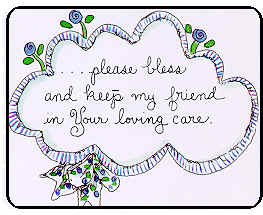 ....please bless
and keep my friend
in Your loving care.